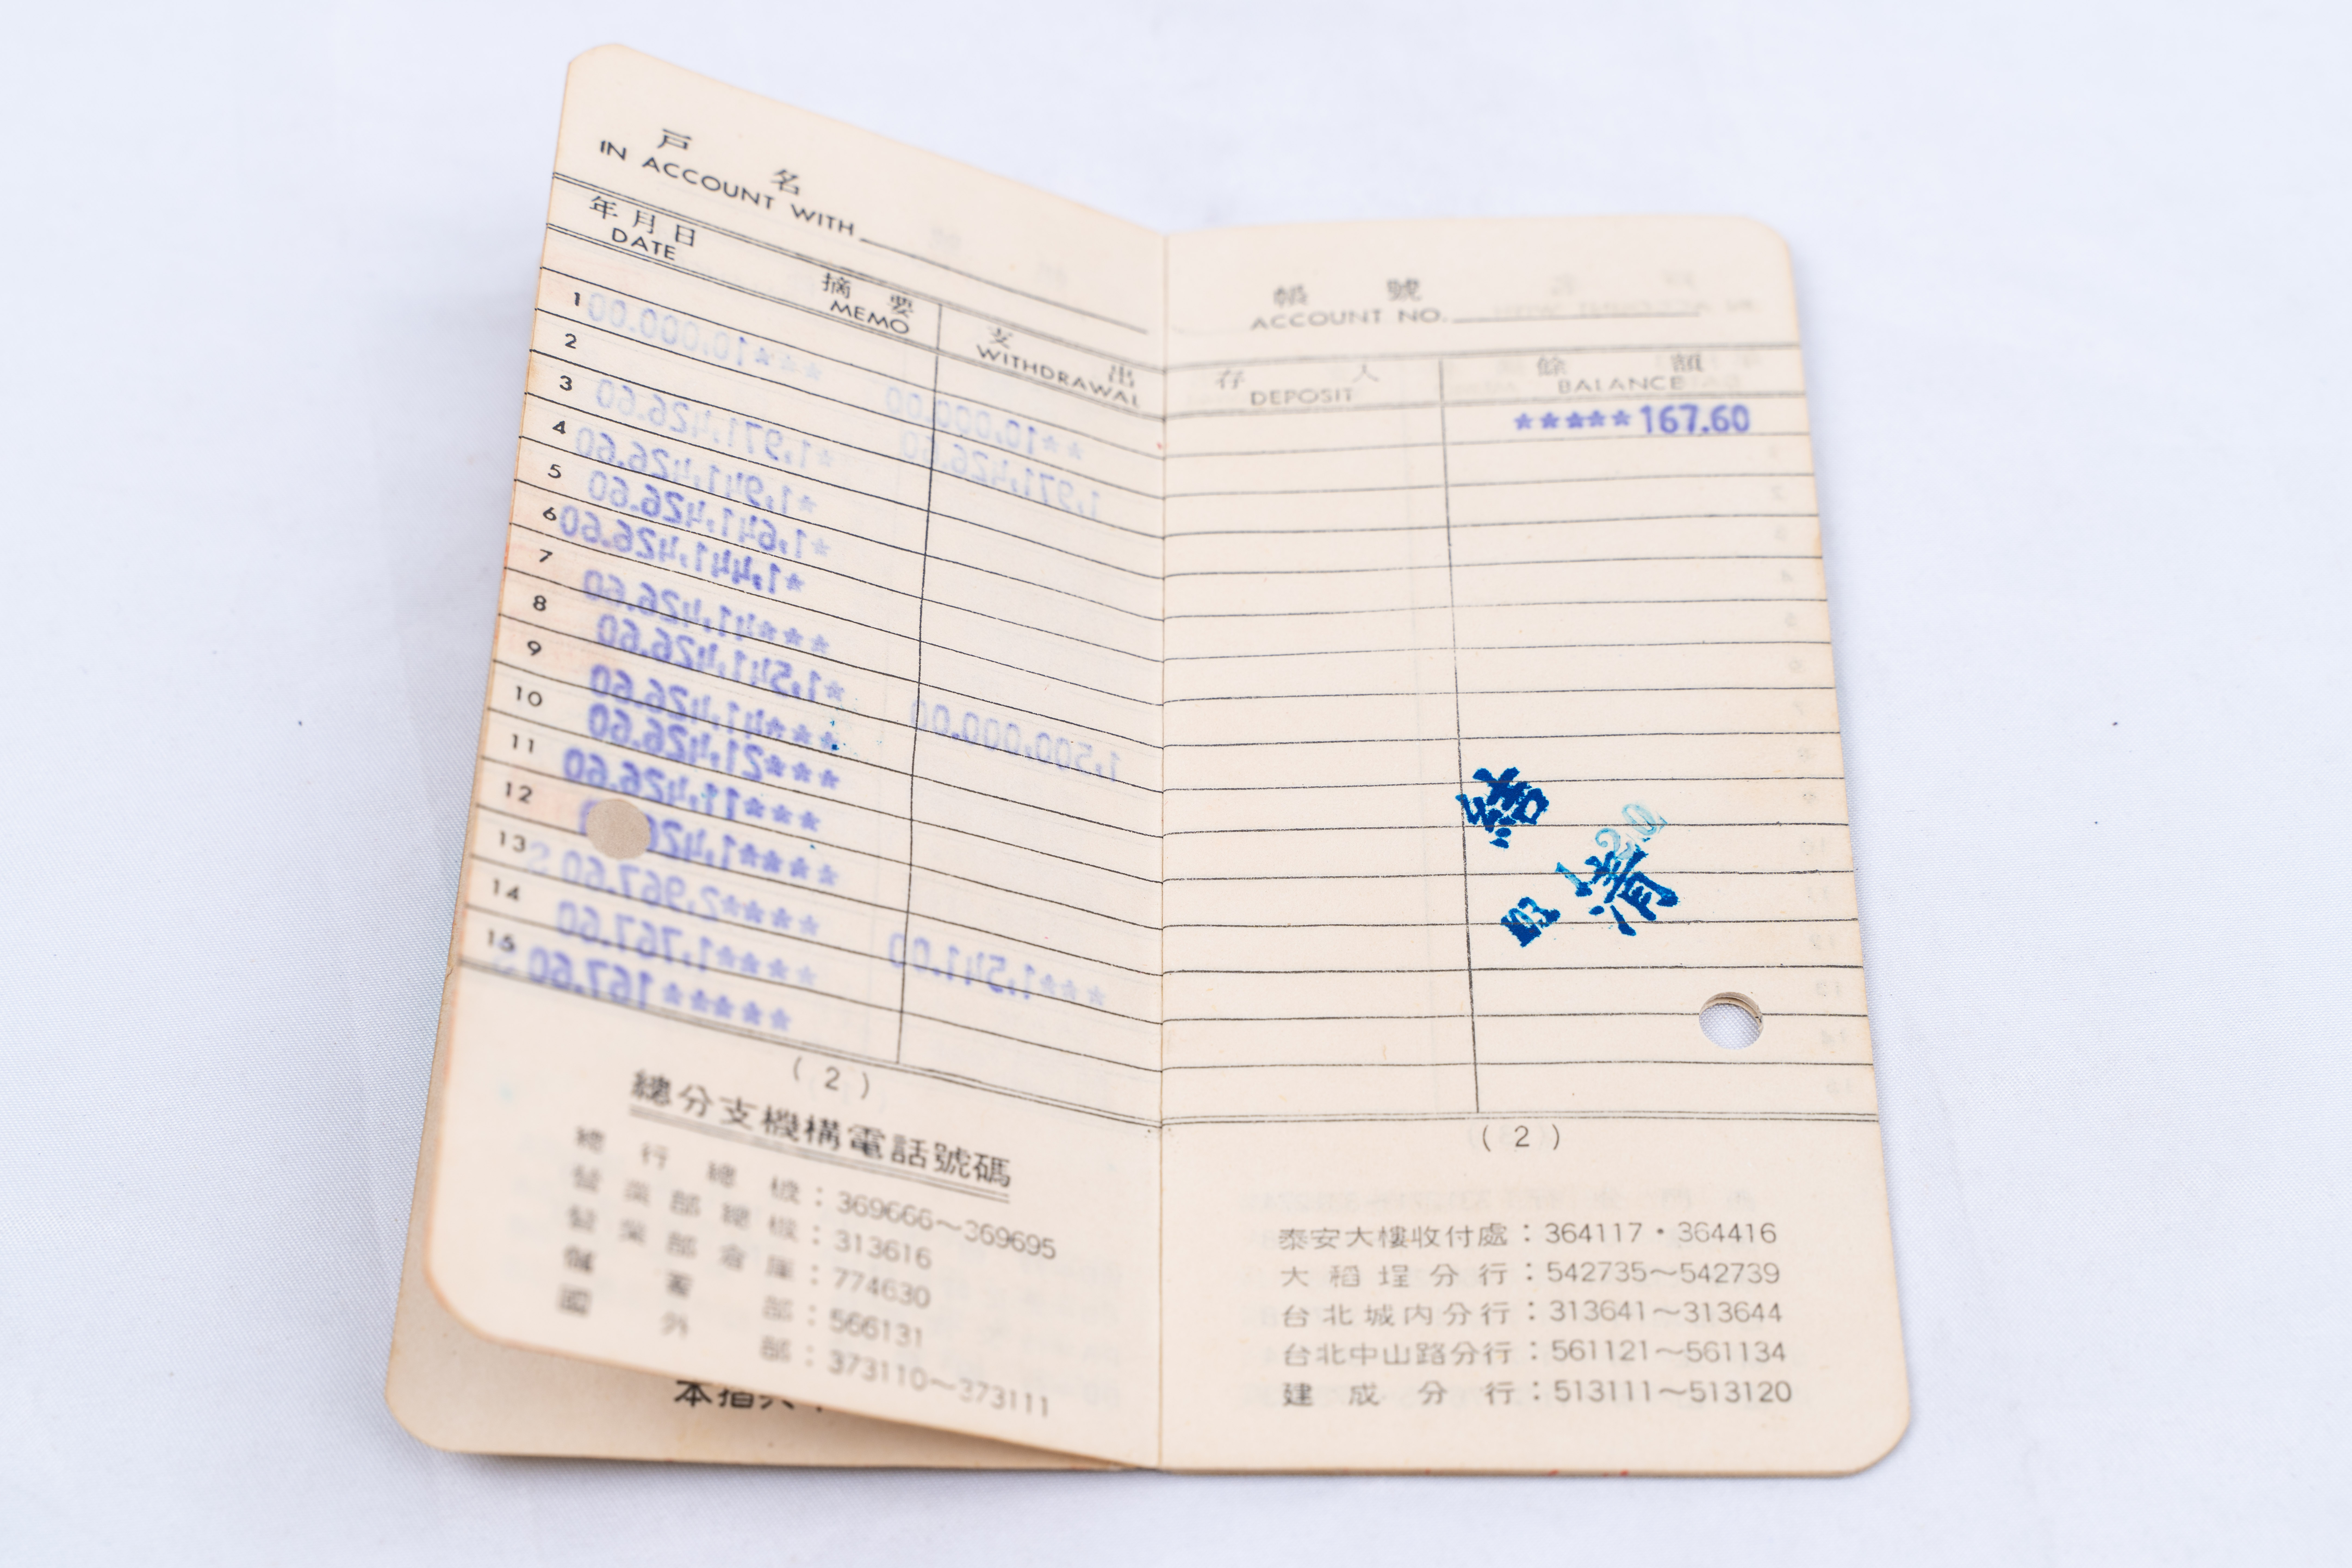 戶 名
IN ACCOUNT WITH
年月日
DATE
摘 要
MEMO
支 出
WITHDRAWAL
1
2
3
4
5
6
7
8
9
10
11
12
13
14
15
(2)
總分支機構電話號碼
總行總機：369666～369695
營業部總機：313616
營業部倉庫：774630
儲蓄部：566131
國外部：373110～373111
帳 號
ACCOUNT NO.
存 入
DEPOSIT
餘 額
BALANCE
*****167.60
結清
(2)
泰安大樓收付處：364117・364416
大稻埕分行：542735～542739
台北城內分行：313641～313644
台北中山路分行：561121～561134
建成分行：513111～513120